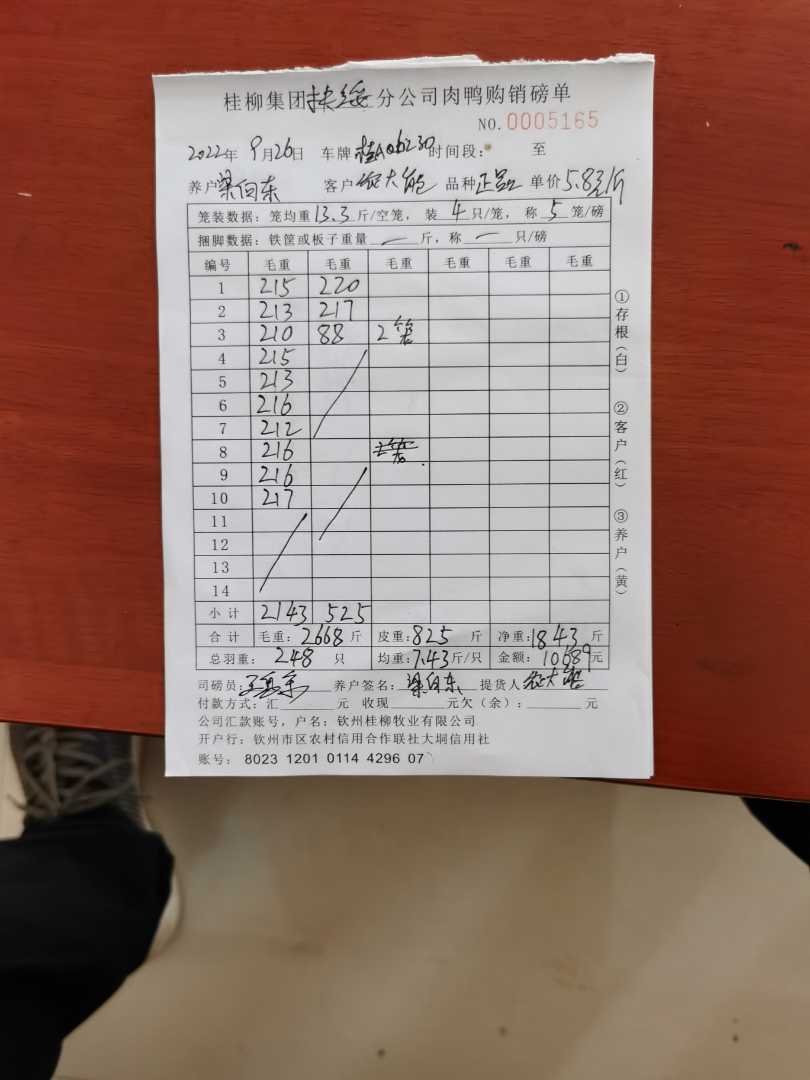 桂柳集团扶绥分公司肉鸭购销磅单
NO.0005165
2022年 9月26日 车牌 桂A06230 时间段: 至
养户 梁向东 客户 大 品种 正品 单价 5.8元/斤
笼装数据: 笼均重 13.3 斤/空笼, 装 4 只/笼, 称 5 笼/磅
捆脚数据: 铁筐或板子重量 — 斤, 称 — 只/磅
编号 毛重 毛重 毛重 毛重 毛重 毛重
1 215 220
2 213 217
3 210 88 2笼
4 215
5 213
6 216
7 212
8 216 2笼
9 216
10 217
11
12
13
14
小计 2143 525
合计 毛重: 2668 斤 皮重: 825 斤 净重: 1843 斤
总羽重: 248 只 均重: 7.43 斤/只 金额: 10689 元
司磅员: 王 养户签名: 梁向东 提货人 大
付款方式: 汇 元 收现 元欠(余): 元
公司汇款账号, 户名: 钦州桂柳牧业有限公司
开户行: 钦州市区农村信用合作联社大垌信用社
账号: 8023 1201 0114 4296 07
①存根(白) ②客户(红) ③养户(黄)